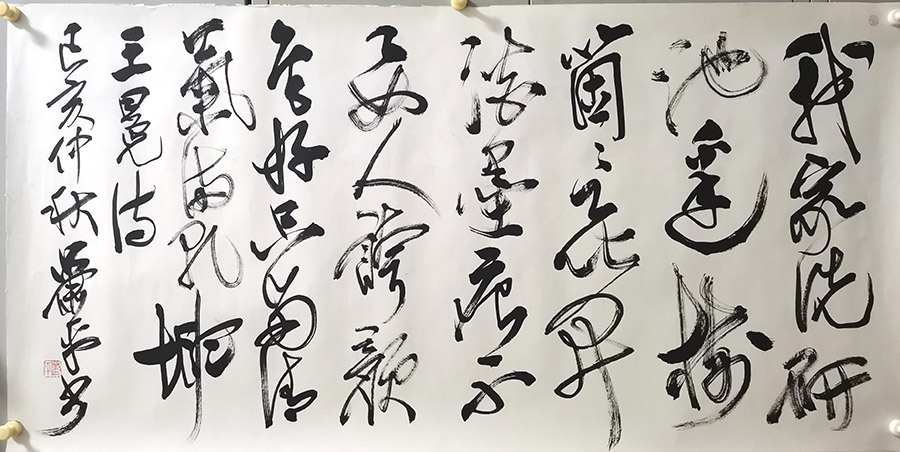 我家洗研
池邊樹
箇〻花開
淡墨痕不
要人誇顏
色好只留清
氣滿乾坤
王冕詩
己亥仲秋書